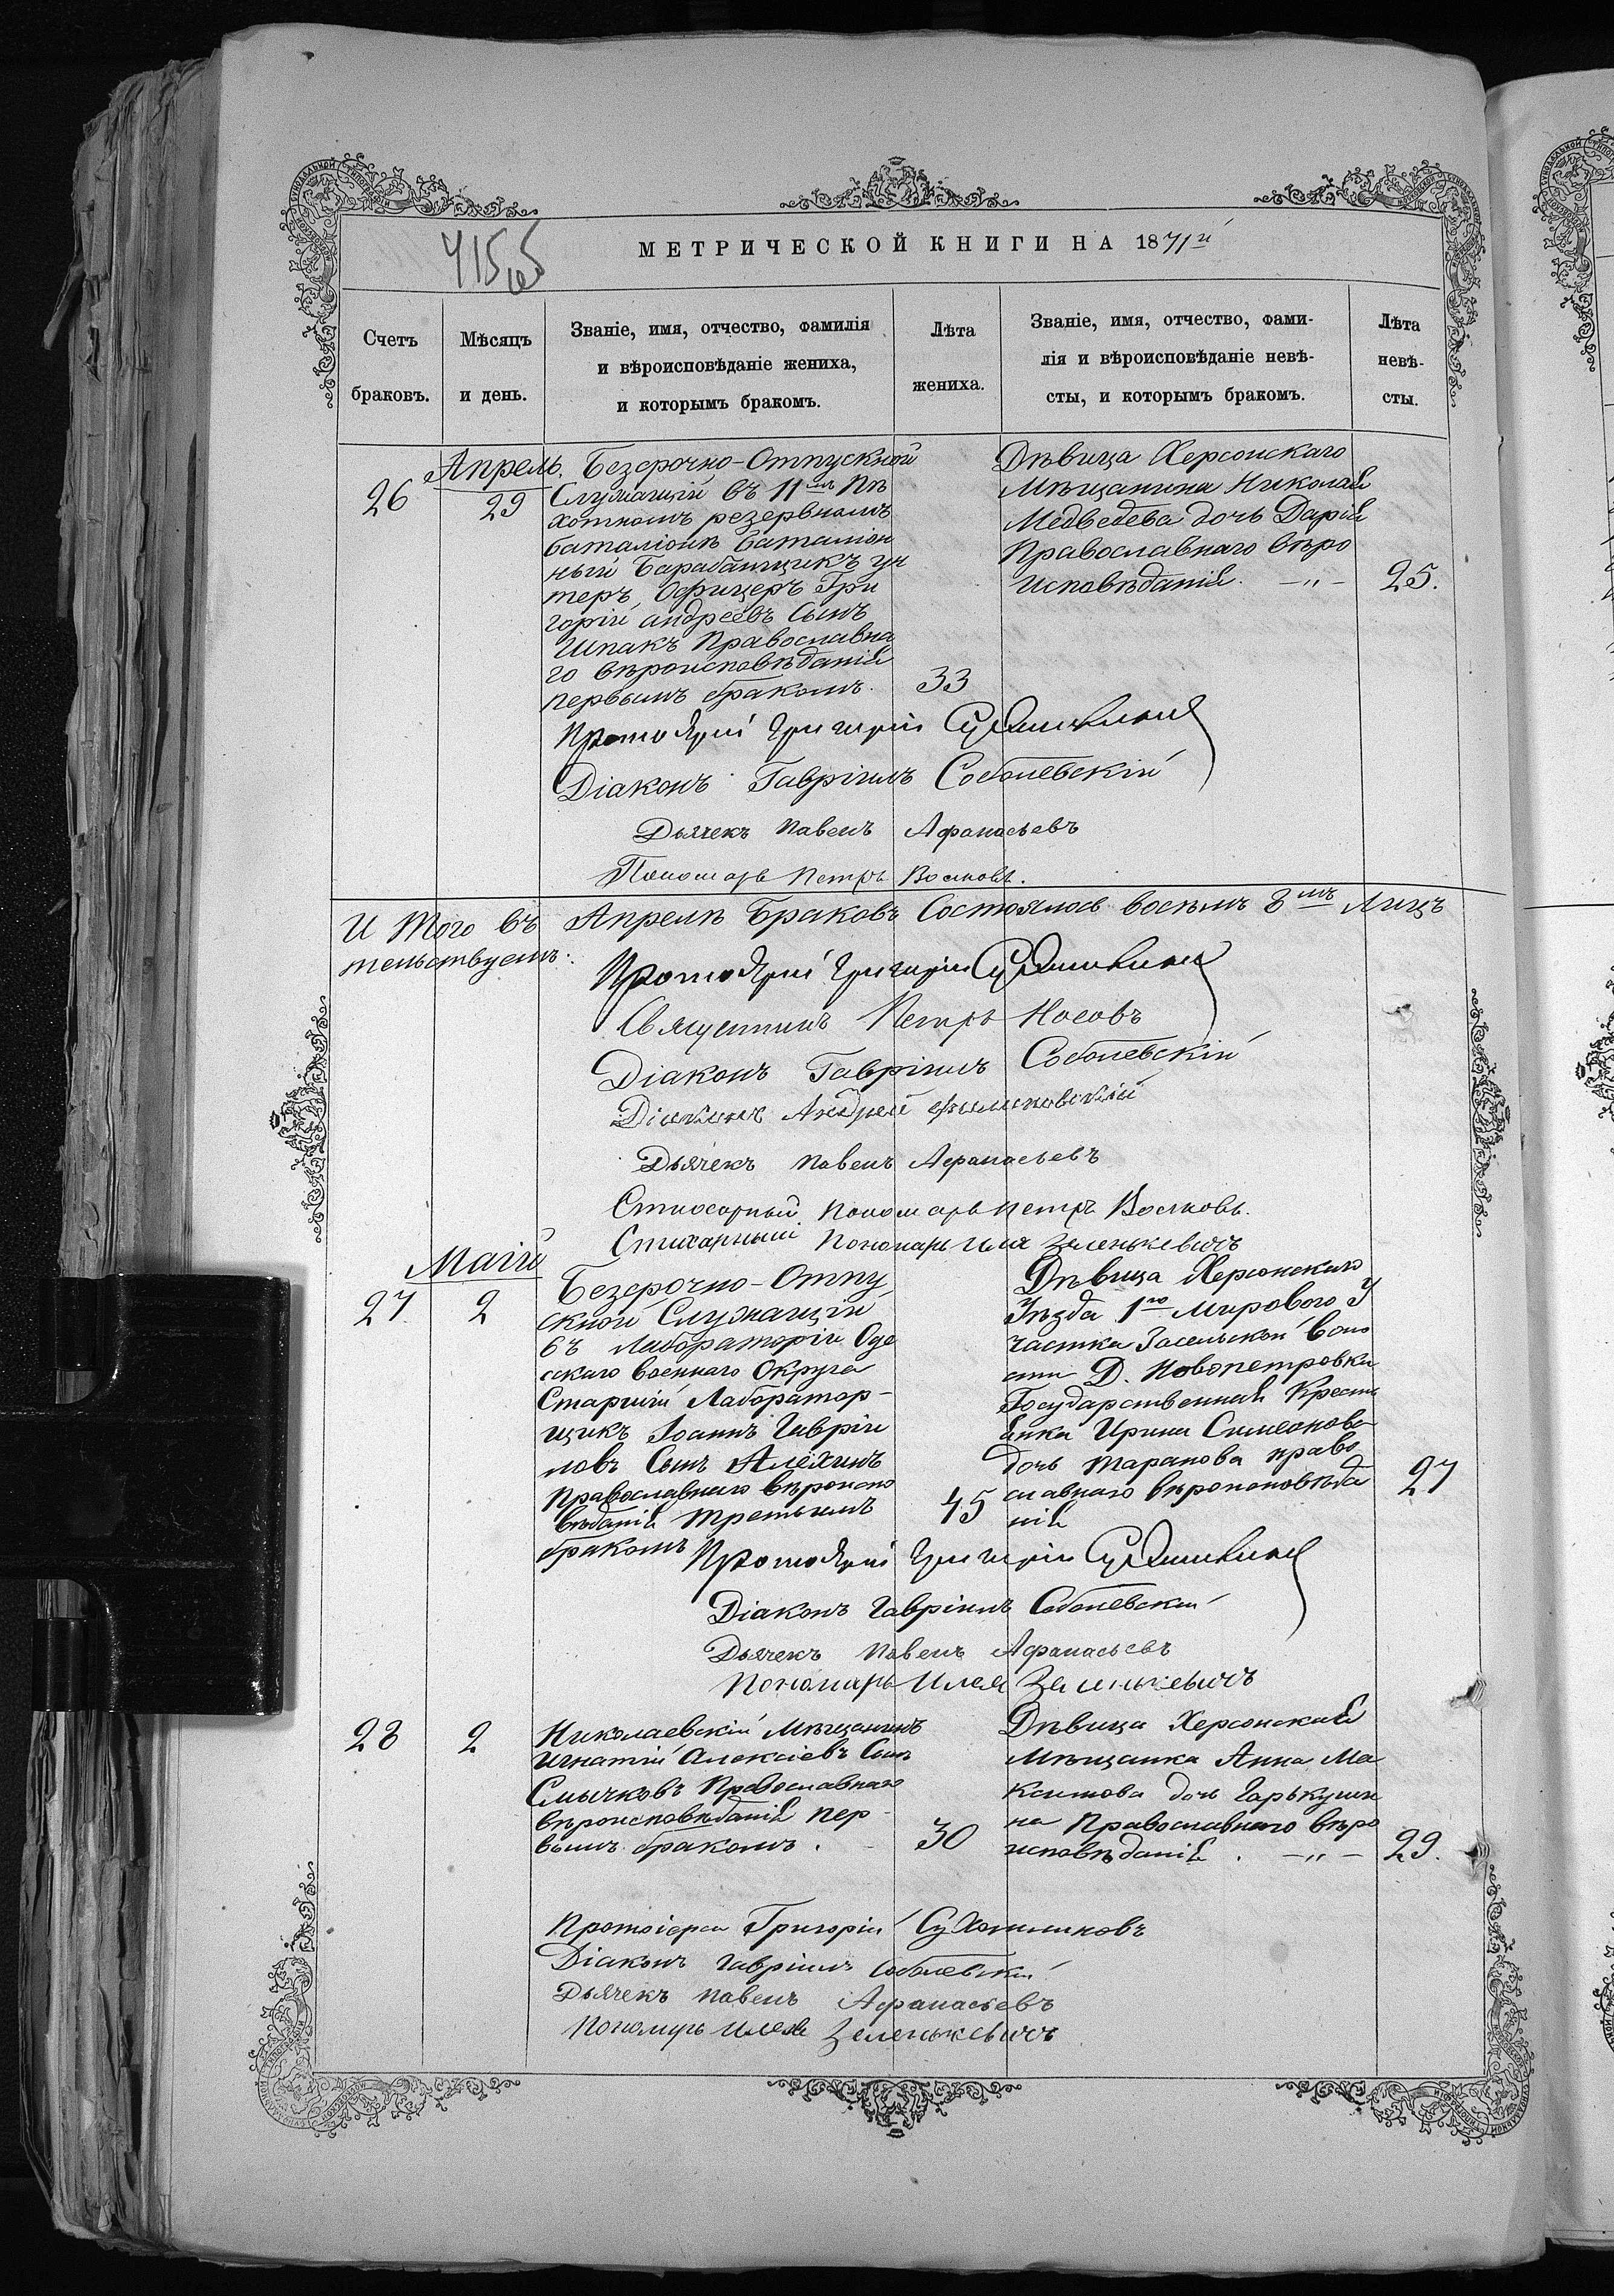 МЕТРИЧЕСКОЙ КНИГИ НА 1871й
Счетъ браковъ.
Мѣсяцъ и день.
Званіе, имя, отчество, фамилія
и вѣроисповѣданіе жениха,
и которымъ бракомъ.
Лѣта жениха.
Званіе, имя, отчество, фами-
лія и вѣроисповѣданіе невѣ-
сты, и которымъ бракомъ.
Лѣта невѣ-
сты.
Апрель
26
29
Безсрочно-Отпускной
Служащій въ 11мъ Пѣ
хотномъ резервномъ
баталіонѣ баталіон
ный Барабанщикъ ун
теръ Офицеръ Гри
горій андреевъ Сынъ
Шпакъ Православна
го вѣроисповѣданія
первымъ бракомъ.
33
Дѣвица Херсонскаго
Мѣщанина Николая
Медведева дочь Дарія
Православнаго вѣро
исповѣданія. -„-
25.
Протоіерей Григорій Сухомлиновъ
Діаконъ Гавріилъ Соболевскій
Дьячекъ Павелъ Афанасьевъ
Пономарь Петръ Волковъ.
И Того въ Апрелѣ Браковъ Состоялось восемь 8мъ
тельствуемъ.
Протоіерей Григорій Сухомлиновъ
Священникъ Петръ Носовъ
Діаконъ Гавріилъ Соболевскій
Діаконъ Андрей
Дьячекъ Павелъ Афанасьевъ
Стихарный Пономарь Петръ Волковъ.
Стихарный Пономарь Илія Зеленькевичъ
Маій
27
2
Безсрочно-Отпу
скной Служащій
въ Лабораторіи Оде
сскаго военнаго Округа
Старшій Лаборатор-
щикъ Іоаннъ Гавріи
ловъ Сынъ Алехинъ
Православнаго вѣроиспо
вѣданія третьимъ
бракомъ
45
Дѣвица Херсонскаго
Уѣзда 1го Мироваго У
частка Засельской воло
сти Д. Новопетровки
Государственная Кресть
янка Ирина Симеонова
дочь Таранова право
славнаго вѣроисповѣда
нія
27
Протоіерей Григорій Сухомлиновъ
Діаконъ Гавріилъ Соболевскій
Дьячекъ Павелъ Афанасьевъ
Пономарь Илія Зеленькевичъ
28
2
Николаевскій Мѣщанинъ
Игнатій Алексіевъ Сынъ
Смычковъ Православнаго
вѣроисповѣданія пер-
вымъ бракомъ.
30
Дѣвица Херсонская
Мѣщанка Анна Ма
ксимова дочь Гарькуши
на Православнаго вѣро
исповѣданія. -„-
29.
Протоіерей Григорій Сухомлиновъ
Діаконъ Гавріилъ Соболевскій
Дьячекъ Павелъ Афанасьевъ
Пономарь Илія Зеленькевичъ